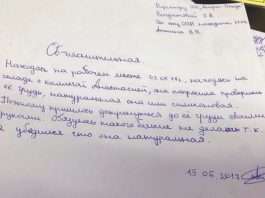 Объяснительная
Находясь на рабочем месте 03.05.17г., находясь на
складе с коллегой Анастасией, она попросила проверить
её грудь, натуральная она или силиконовая.
Поэтому пришлось дотронуться до её груди своими
руками. Обязуюсь такого больше не делать т.к.
я убедился что она натуральная.
15.05.2017г.